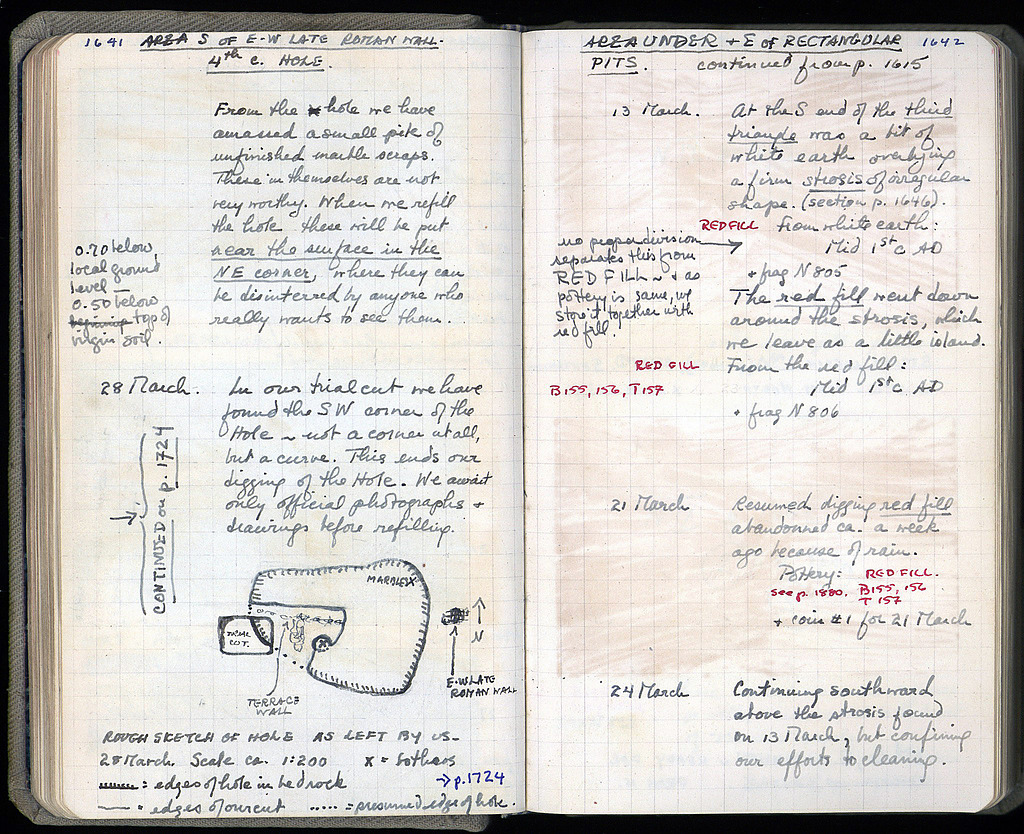 1641 AREA S OF E-W LATE ROMAN WALL.
4th C. HOLE.
From the hole we have
amassed a small pile of
unfinished marble scraps.
These in themselves are not
very worthy. When we refill
the hole these will be put
near the surface in the
NE corner, where they can
be disinterred by anyone who
really wants to see them.
0.70 below
local ground
level –
0.50 below
beginning top of
virgin soil.
28 March. In our trial cut we have
found the SW corner of the
Hole ~ not a corner at all,
but a curve. This ends our
digging of the Hole. We await
only official photographs +
drawings before refilling.
CONTINUED on p. 1724
MARBLE X
TRIAL
CUT.
N
TERRACE
WALL
E-W LATE
ROMAN WALL
ROUGH SKETCH OF HOLE AS LEFT BY US -
28 March Scale ca. 1:200 X = Bothros
→ p. 1724
= edges of hole in bedrock
— = edges of our cut ..... = presumed edge of hole.
AREA UNDER + E OF RECTANGULAR 1642
PITS. continued from p. 1615
13 March. At the S end of the third
triangle was a bit of
white earth overlying
a firm strosis of irregular
shape. (section p. 1646).
RED FILL From white earth:
Mid 1st c AD
+ frag N 805
no proper division
separates this from
RED FILL ~ + as
pottery is same, we
store it together with
red fill.
The red fill went down
around the strosis, which
we leave as a little island.
RED FILL From the red fill:
B 155, 156, T 157 Mid 1st c. AD
+ frag N 806
21 March Resumed digging red fill
abandonned ca. a week
ago because of rain.
Pottery: RED FILL.
see p. 1880. B155, 156
T 157
+ coin #1 for 21 March
24 March Continuing southward
above the strosis found
on 13 March, but confining
our efforts to cleaning.